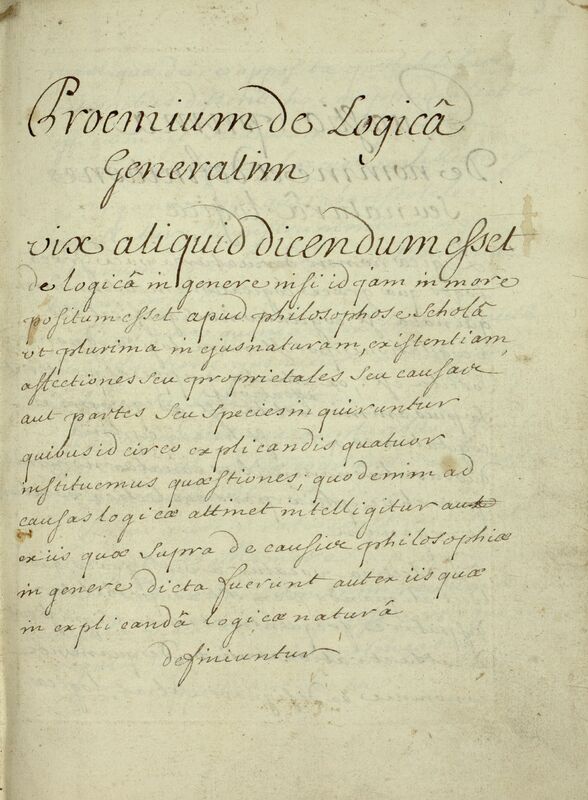 Proemium de Logicâ
Generatim
vix aliquid dicendum esset
de logicâ in genere nisi id jam in more
positum esset apud philosophos e scholâ
vt plurima in ejus naturam, existentiam,
affectiones seu proprietates seu causas
aut partes seu species inquiruntur
quibus idcirco explicandis quatuor
instituemus quæstiones; quod enim ad
causas logicæ attinet intelligitur aut
ex iis quæ supra de causis philosophiæ
in genere dicta fuerunt aut ex iis quæ
in explicandâ logicæ naturâ
definiuntur